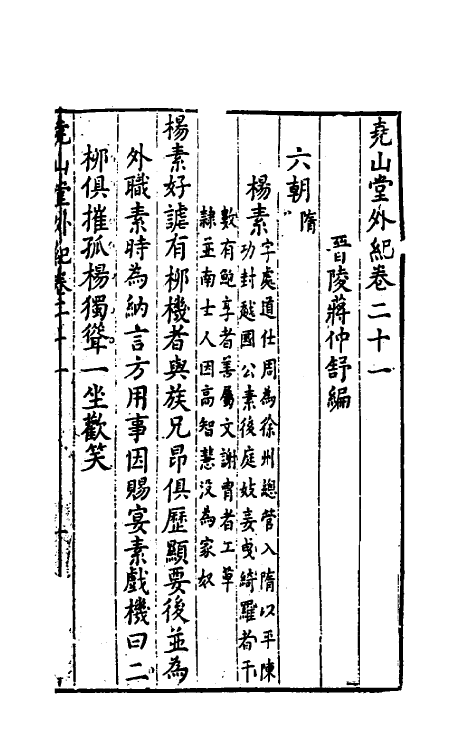 堯山堂外紀卷二十一
晉陵蔣仲舒編
六朝隋
楊素字處道仕周為徐州總管入隋以平陳
功封越國公素後庭妓妾曳綺羅者千
數有鮑亨者善屬文謝冑者工草
隸並南士人因高智慧没為家奴
楊素好謔有柳機者與族兄昂俱歷顯要後並為
外職素時為納言方用事因賜宴素戲機曰二
柳俱摧孤楊獨聳一坐歡笑
堯山堂外紀卷二十一